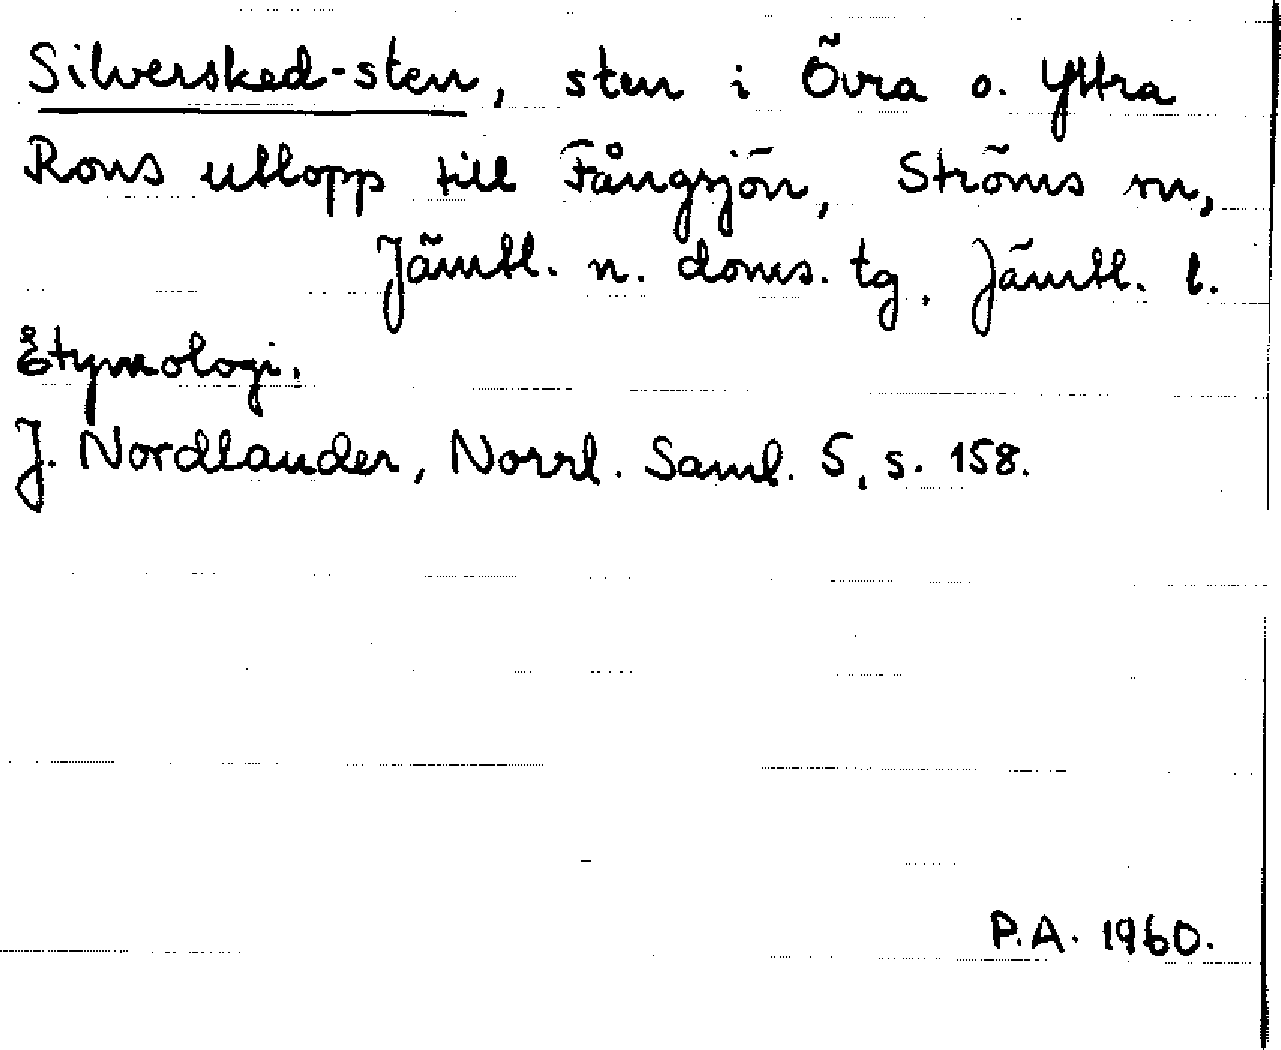 Silversked-sten, sten i Övra o. Yttra
Rons utlopp till Fångsjön, Ströms sn,
Jämtl. n. doms. tg. Jämtl. l.
Etymologi.
J. Nordlander, Norrl. Saml. 5, s. 158.
P.A. 1960.